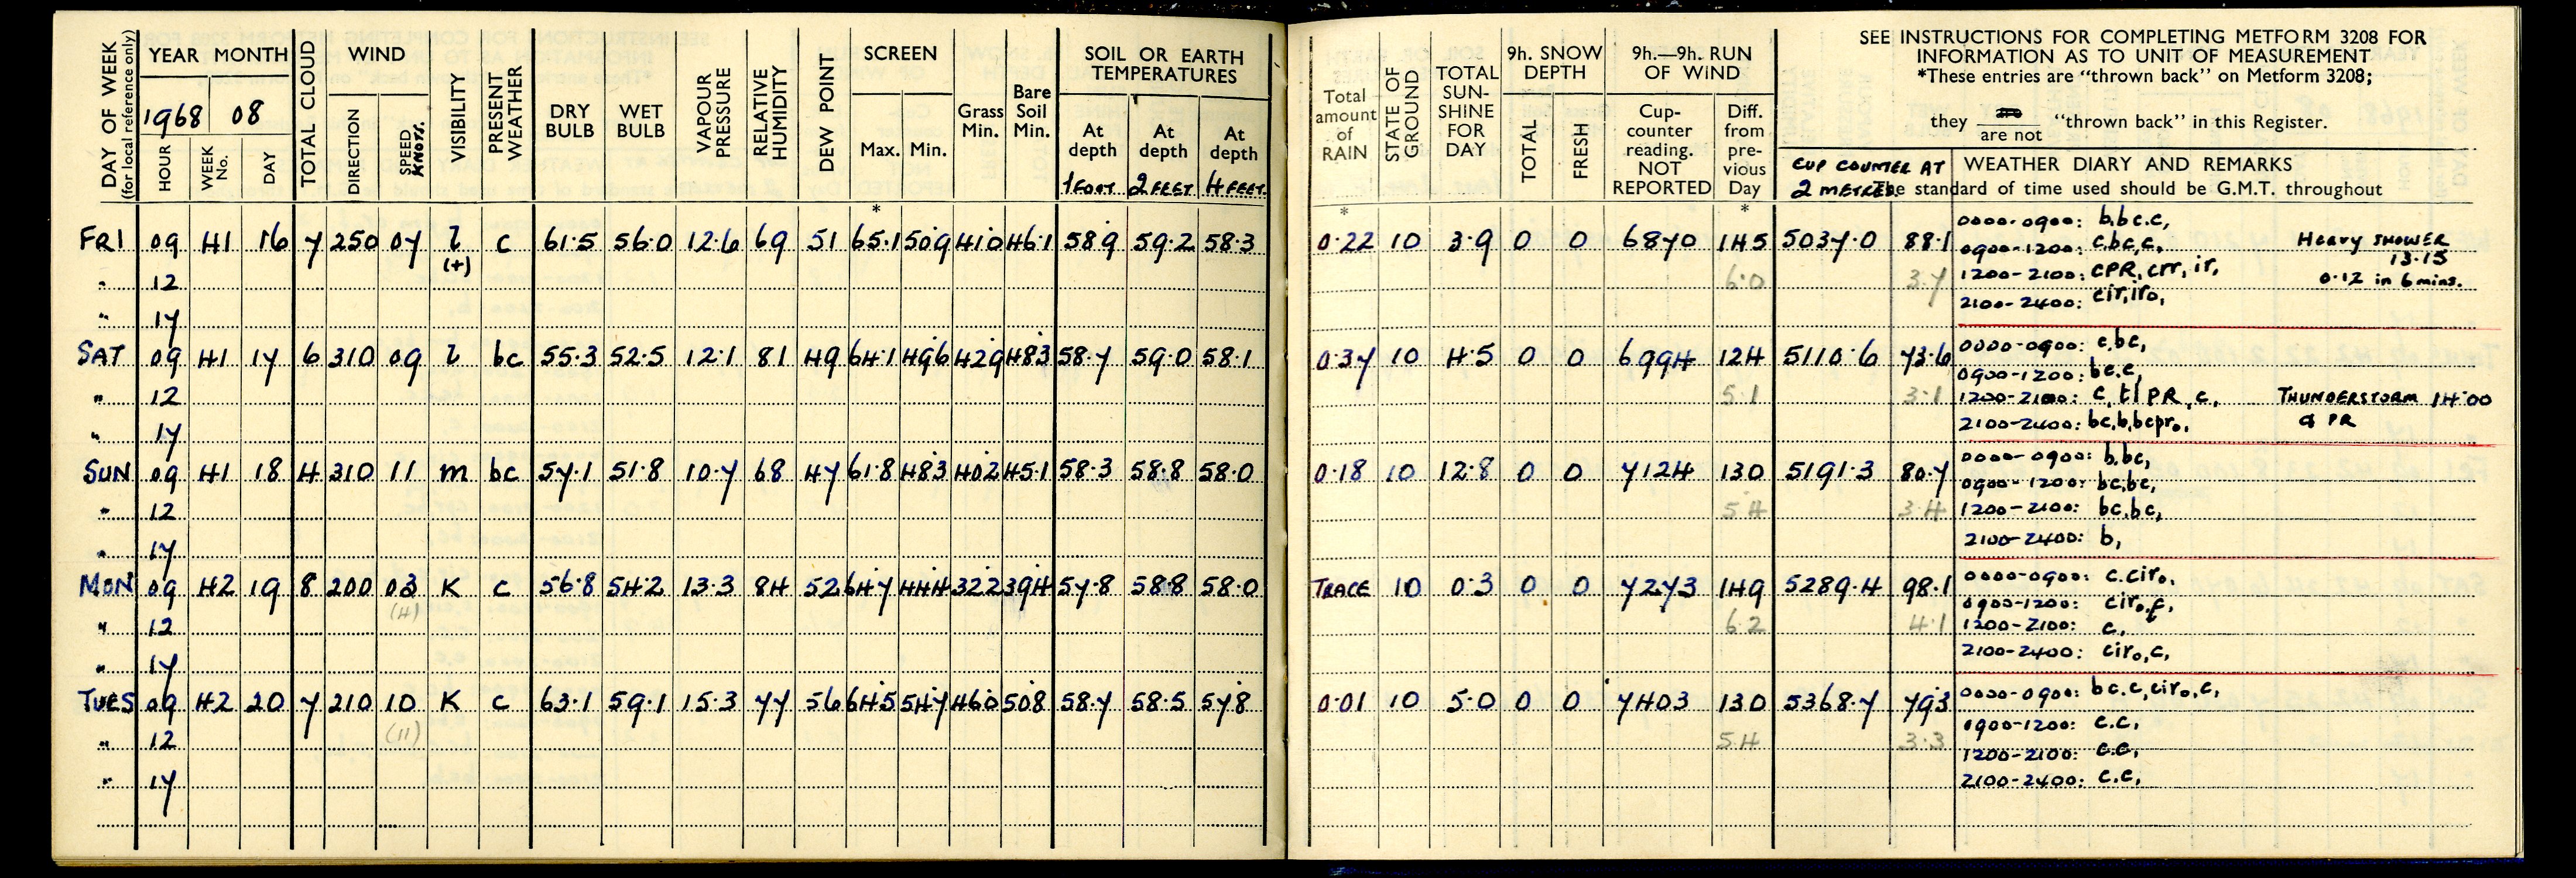 SEE INSTRUCTIONS FOR COMPLETING METFORM 3208 FOR
INFORMATION AS TO UNIT OF MEASUREMENT
*These entries are "thrown back" on Metform 3208;
they are / are not "thrown back" in this Register.
DAY OF WEEK (for local reference only)
YEAR MONTH
1968 08
HOUR WEEK No. DAY
TOTAL CLOUD
WIND
DIRECTION SPEED KNOTS.
VISIBILITY
PRESENT WEATHER
DRY BULB
WET BULB
VAPOUR PRESSURE
RELATIVE HUMIDITY
DEW POINT
SCREEN
Max. Min.
Grass Min.
Bare Soil Min.
SOIL OR EARTH TEMPERATURES
At depth 1 FOOT
At depth 2 FEET
At depth 4 FEET
Total amount of RAIN
STATE OF GROUND
TOTAL SUN-SHINE FOR DAY
9h. SNOW DEPTH
TOTAL FRESH
9h.—9h. RUN OF WIND
Cup-counter reading. NOT REPORTED
Diff. from pre-vious Day
CUP COUNTER AT 2 METRES.
WEATHER DIARY AND REMARKS
The standard of time used should be G.M.T. throughout
* * *
FRI 09 41 16 7 250 07 l c 61.5 56.0 12.6 69 51 65.1 50.9 41.0 46.1 58.9 59.2 58.3 0.22 10 3.9 0 0 6870 145 5037.0 88.1 0000-0900: b,bc.c,
(+) 0900-1200: c,bc,c, Heavy SHOWER
" 12 6.0 3.7 1200-2100: cPR, crr, ir, 13.15
0.12 in 6 mins.
" 17 2100-2400: cir,iro,
SAT 09 41 17 6 310 09 l bc 55.3 52.5 12.1 81 49 64.1 49.6 42.9 48.3 58.7 59.0 58.1 0.37 10 4.5 0 0 6994 124 5110.6 73.6 0000-0900: c,bc,
0900-1200: bc.c,
" 12 5.1 3.1 1200-2100: c, tlPR, c, THUNDERSTORM 14.00
" 17 2100-2400: bc,b,bcpro, & PR
SUN 09 41 18 4 310 11 m bc 57.1 51.8 10.7 68 47 61.8 48.3 40.2 45.1 58.3 58.8 58.0 0.18 10 12.8 0 0 7124 130 5191.3 80.7 0000-0900: b,bc,
0900-1200: bc,bc,
" 12 5.4 3.4 1200-2100: bc,bc,
" 17 2100-2400: b,
MON 09 42 19 8 200 03 K c 56.8 54.2 13.3 84 52 64.7 44.4 32.2 39.4 57.8 58.8 58.0 TRACE 10 0.3 0 0 7273 149 5289.4 98.1 0000-0900: c.ciro,
(4) 0900-1200: ciro,c,
" 12 6.2 4.1 1200-2100: c,
" 17 2100-2400: ciro,c,
TUES 09 42 20 7 210 10 K c 63.1 59.1 15.3 77 56 64.5 54.7 46.0 50.8 58.7 58.5 57.8 0.01 10 5.0 0 0 7403 130 5368.7 79.3 0000-0900: bc.c,ciro,c,
(11) 0900-1200: c.c,
" 12 5.4 3.3 1200-2100: c.c,
" 17 2100-2400: c.c,